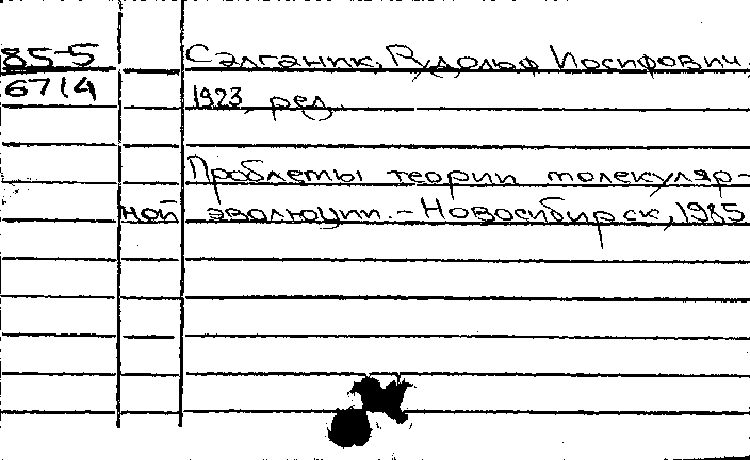 85-5 Салганик, Рудольф Иосифович,
6714 1923, ред.
Проблемы теории молекуляр-
ной эволюции. - Новосибирск, 1985